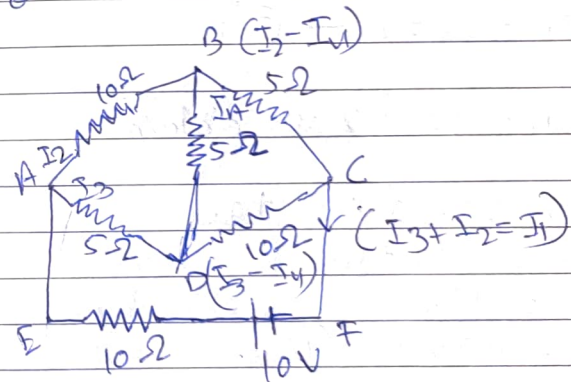 B (I2-I4)
10Ω
5Ω
I4
5Ω
A
I2
I3
C
5Ω
10Ω
(I3+I2=I1)
D(I3-I4)
E
10Ω
10V
F